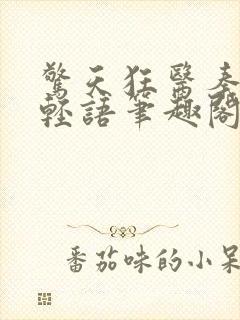 驚天狂醫秦
輕語筆趣閣
番茄味的小呆